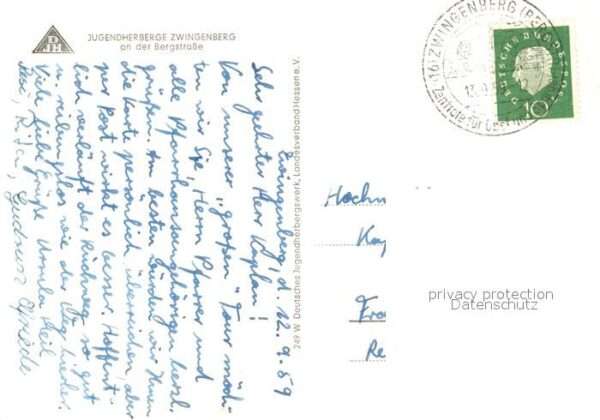 DJH
JUGENDHERBERGE ZWINGENBERG
an der Bergstraße
Zwingenberg, d. 12.9.59
Sehr geehrter Herr Kaplan!
Von unserer "großen" Tour möch-
ten wir Sie, Herrn Pfarrer und
alle Pfarrhausangehörigen herzl.
grüßen. Am besten würden wir Ihnen
die Karte persönlich überreichen, aber
per Post wirkt es besser. Hoffent-
lich verläuft der Rückweg so gut
u. reibungslos wie der Weg hierher.
Viele Grüße Ursula
Rita, Gudrun
249 W Deutsches Jugendherbergswerk, Landesverband Hessen e.V.
(16) ZWINGENBERG (BERG
Zentrale für
DEUTSCHE BUNDESPOST
10
Hochw
Kap
Fra
Re
privacy protection
Datenschutz